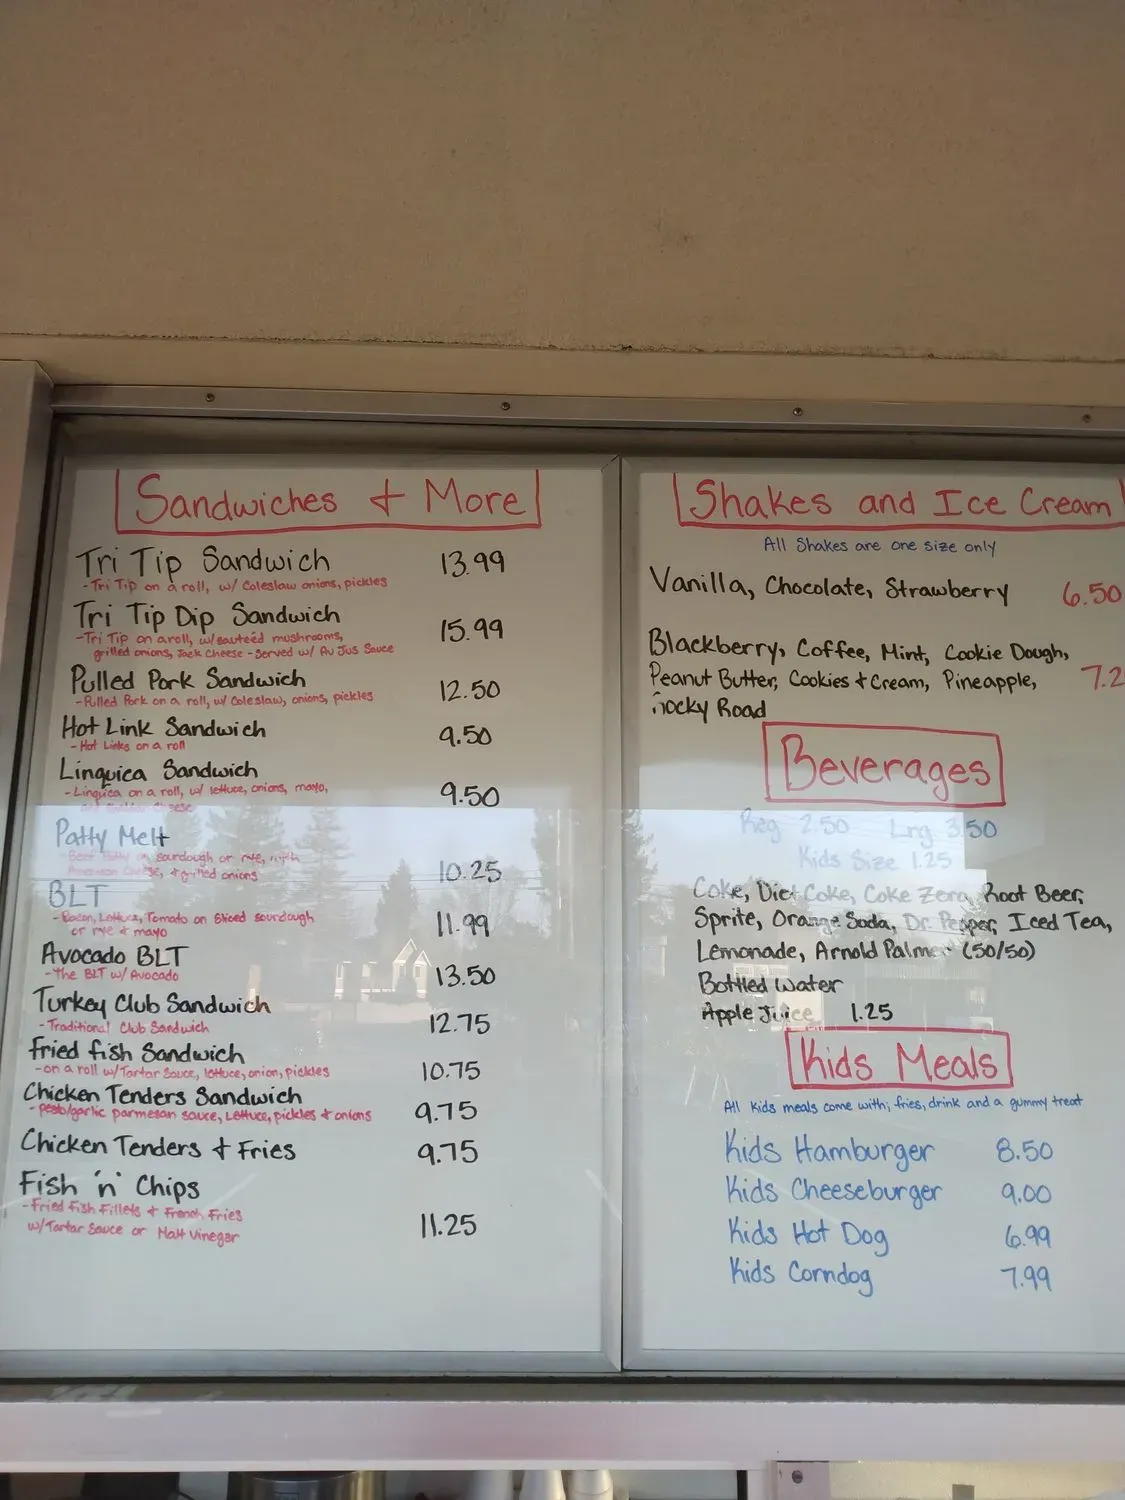 Sandwiches & More
Tri Tip Sandwich 13.99
-Tri Tip on a roll, w/ Coleslaw onions, pickles
Tri Tip Dip Sandwich 15.99
-Tri Tip on a roll, w/sauteéd mushrooms,
grilled onions, Jack Cheese - Served w/ Au Jus Sauce
Pulled Pork Sandwich 12.50
-Pulled Pork on a roll, w/ Coleslaw, onions, pickles
Hot Link Sandwich 9.50
- Hot Links on a roll
Linguica Sandwich 9.50
-Linguica on a roll, w/ lettuce, onions, mayo,
Cheese
Patty Melt 10.25
-Beef Patty on sourdough or rye, with
American Cheese, & grilled onions
BLT 11.99
-Bacon, Lettuce, Tomato on Sliced sourdough
or rye & mayo
Avocado BLT 13.50
-the BLT w/ Avocado
Turkey Club Sandwich 12.75
-Traditional Club Sandwich
Fried fish Sandwich 10.75
-on a roll w/Tartar Sauce, lettuce, onion, pickles
Chicken Tenders Sandwich 9.75
-pesto/garlic parmesan sauce, Lettuce, pickles & onions
Chicken Tenders & Fries 9.75
Fish 'n' Chips 11.25
-Fried Fish Fillets & French Fries
w/Tartar Sauce or Malt Vinegar
Shakes and Ice Cream
All Shakes are one size only
Vanilla, Chocolate, Strawberry 6.50
Blackberry, Coffee, Mint, Cookie Dough,
Peanut Butter, Cookies & Cream, Pineapple, 7.2
Rocky Road
Beverages
Reg 2.50 Lrg 3.50
Kids Size 1.25
Coke, Diet Coke, Coke Zero, Root Beer,
Sprite, Orange Soda, Dr. Pepper, Iced Tea,
Lemonade, Arnold Palmer (50/50)
Bottled Water
Apple Juice 1.25
Kids Meals
All Kids meals come with; fries, drink and a gummy treat
Kids Hamburger 8.50
Kids Cheeseburger 9.00
Kids Hot Dog 6.99
Kids Corndog 7.99